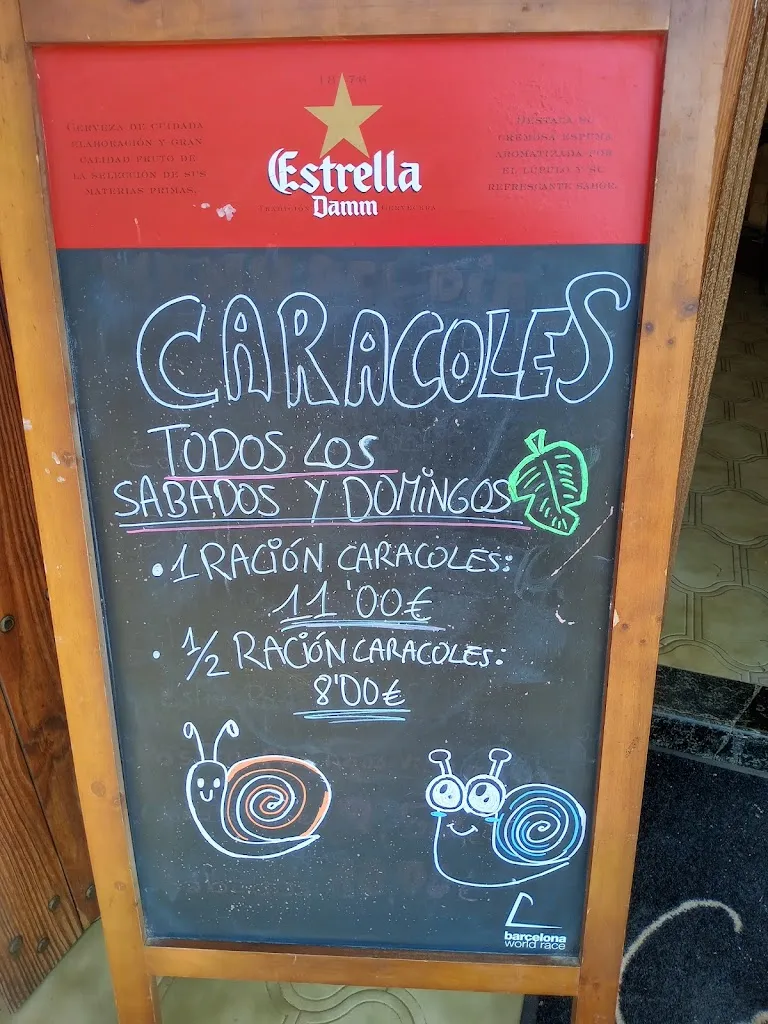 1876
CERVEZA DE CUIDADA
ELABORACIÓN Y GRAN
CALIDAD FRUTO DE
LA SELECCIÓN DE SUS
MATERIAS PRIMAS.
Estrella
Damm
DESTACA SU
CREMOSA ESPUMA
AROMATIZADA POR
EL LÚPULO Y SU
REFRESCANTE SABOR.
CARACOLES
TODOS LOS
SABADOS Y DOMINGOS
• 1 RACIÓN CARACOLES:
11'00€
• 1/2 RACIÓN CARACOLES:
8'00€
barcelona
world race